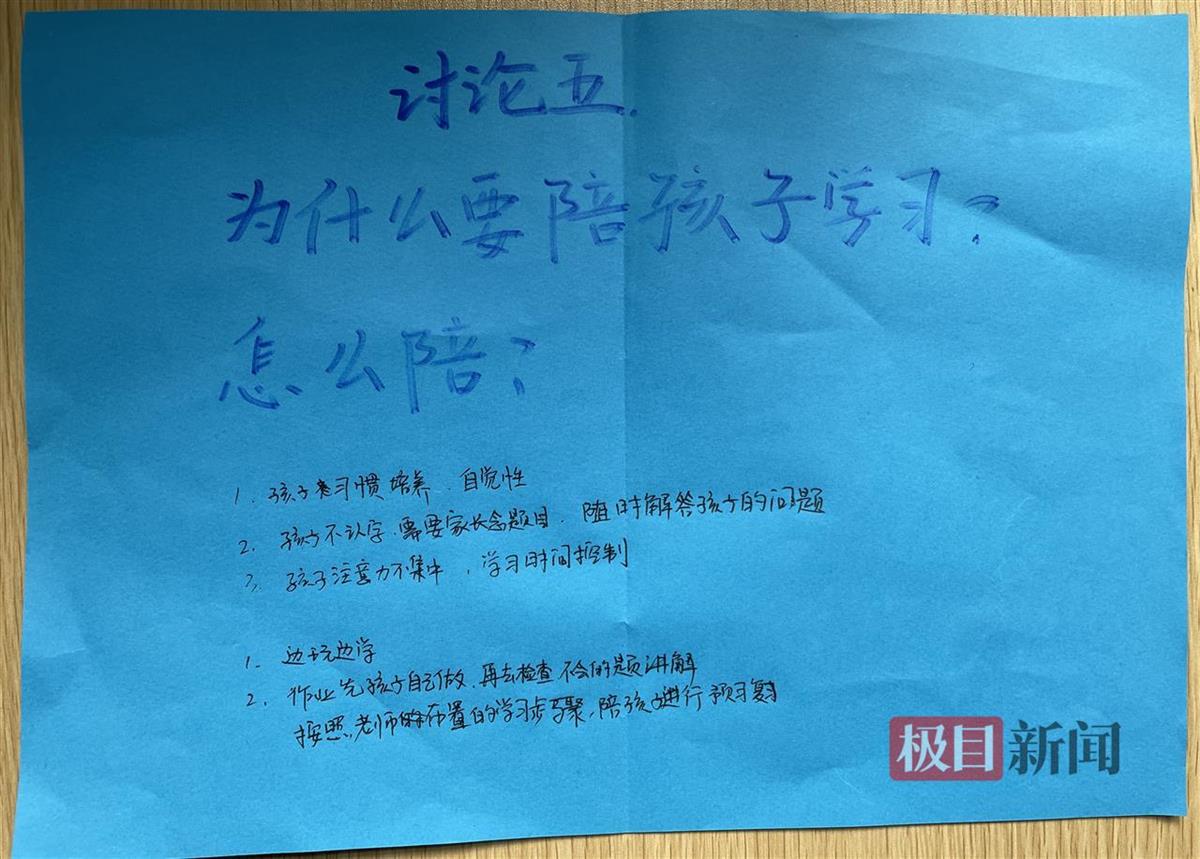 讨论五.
为什么要陪孩子学习?
怎么陪?
1. 孩子习惯培养、自觉性
2. 孩子不认字、需要家长念题目、随时解答孩子的问题
3. 孩子注意力不集中,学习时间控制
1. 边玩边学
2. 作业先孩子自己做、再去检查不会的题讲解
按照老师布置的学习步骤、陪孩子进行预习复习
极目新闻